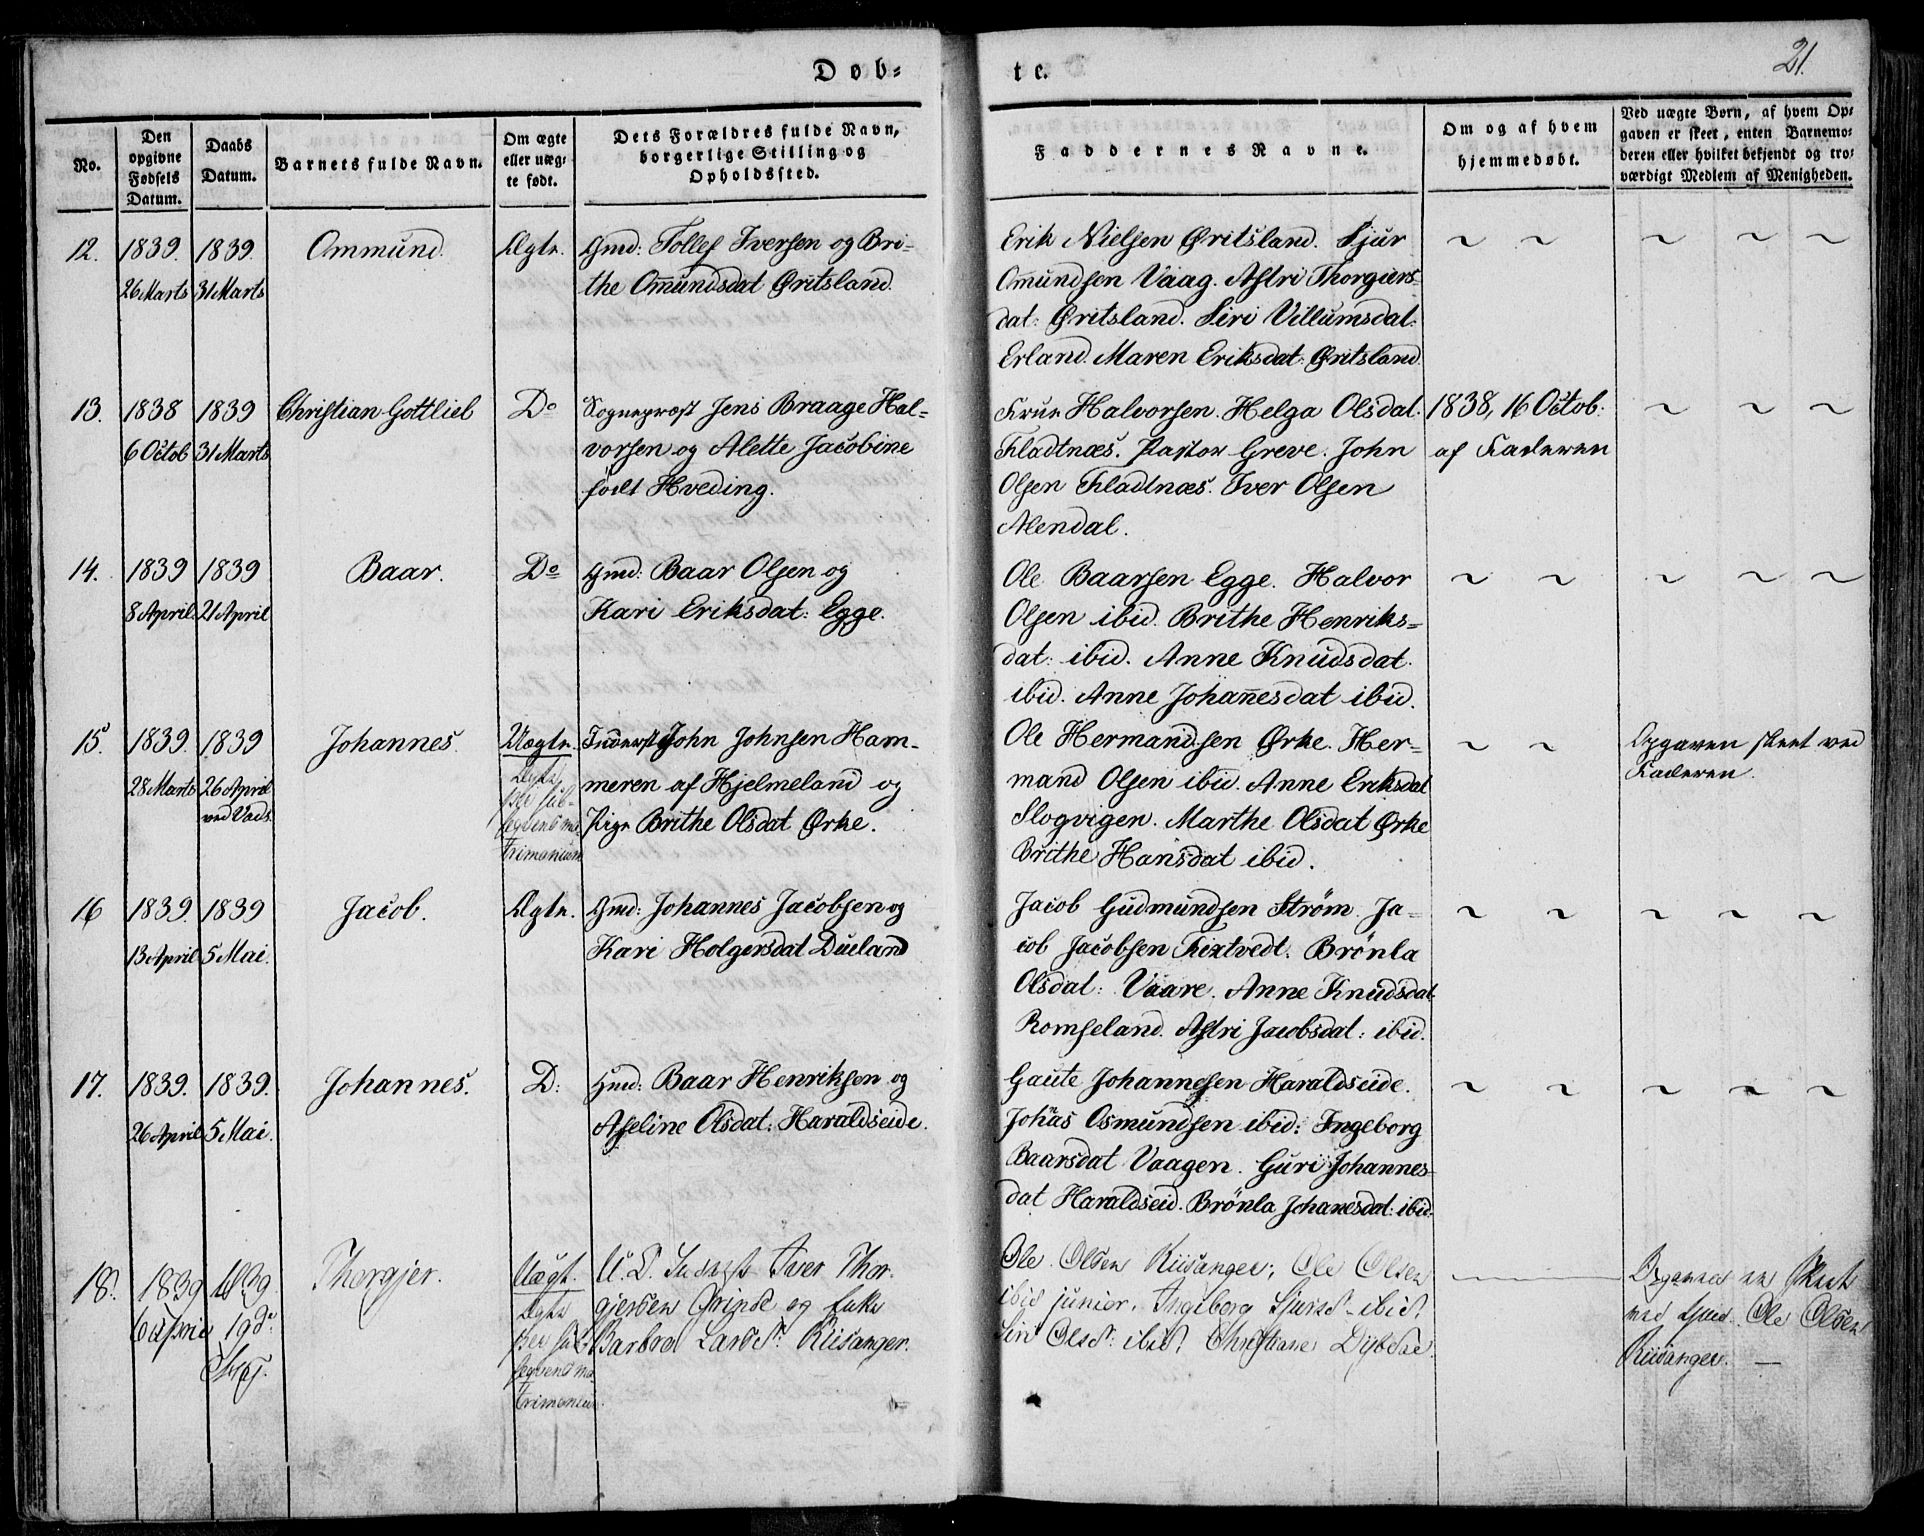 21.
Døb-
te.
No.
Den opgivne Fødsels Datum.
Daabs Datum.
Barnets fulde Navn.
Om ægte eller uæg-
te født.
Dets Forældres fulde Navn,
borgerlige Stilling og
Opholdssted.
Faddernes Navne.
Om og af hvem
hjemmedøbt.
Ved uægte Børn, af hvem Op-
gaven er skeet, enten Barnemo-
deren eller hvilket bekjendt og tro-
værdigt Medlem af Menigheden.
12.
1839.
26 Marts
1839.
31 Marts
Ommund.
Ægte.
Gmd: Tollef Iversen og Bri-
the Omundsdat Øritsland.
Erik Nielsen Øritsland. Sjur
Omundsen Vaag. Astri Thorgiers-
dat: Øritsland. Siri Villumsdat:
Erland. Maren Eriksdat: Øritsland.
~ ~
~ ~ ~
13.
1838
6 Octob
1839
31 Marts
Christian Gottlieb
Do
Sognepræst Jens Braage Hal-
vorsen og Alette Jacobine
født Hveding.
Frue Halvorsen. Helga Olsdat.
Fladtnæs. Pastor Greve. John
Olsen Fladtnæs. Iver Olsen
Alendal.
1838, 16 Octob:
af Faderen
~ ~ ~
14.
1839
8 April
1839
21 April
Baar.
Do
Gmd: Baar Olsen og
Kari Eriksdat: Egge.
Ole Baarsen Egge. Halvor
Olsen ibid. Brithe Henriks-
dat: ibid. Anne Knudsdat.
ibid. Anne Johannesdat ibid.
~ ~
~ ~ ~
15.
1839.
28 Marts
1839
26 April
ved Vads
Johannes.
Uægte.
Ægte
per sub-
seqvens ma-
trimonium
John Johnsen Ham-
meren af Hjelmeland og
Pige Brithe Olsdat Ørke.
Ole Hermandsen Ørke. Her-
mand Olsen ibid. Anne Eriksdat
Slogvigen. Marthe Olsdat Ørke
Brithe Hansdat ibid.
~ ~
Opgaven skeet ved
Faderen.
16
1839.
13 April
1839
5 Mai.
Jacob.
Ægte.
Gmd: Johannes Jacobsen og
Kari Holgersdat Dueland
Jacob Gudmundsen Strøm. Ja-
cob Jacobsen Brönla
Olsdat: Vaare. Anne Knudsdat
Romseland. Astri Jacobsdat: ibid.
~ ~
~ ~ ~
17.
1839.
26 April
1839.
5 Mai.
Johannes.
D:
Gmd: Baar Henriksen og
Aseline Olsdat: Haraldseide.
Gaute Johannesen Haraldseide.
Johas Osmundsen ibid: Ingeborg
Baarsdat Vaagen. Guri Johannes-
dat Haraldseid. Brönla Johanesdat: ibid.
~ ~
~ ~ ~
18.
1839
6 April
1839.
19d
Thorgjer.
Uægt.
Ægte
per sub-
seqvens ma-
trimonium.
Iver Thor-
gjersen Grinde og Enke
Barbro Larsd. Riisanger.
Ole Olsen Riisanger; Ole Olsen
ibid junior. Ingeborg Sjursd. ibid.
Siri Olsd: ibid. Christiane Dybdae.
Opgaven er skeet
ved Gmd. Ole Olsen
Riisanger. —